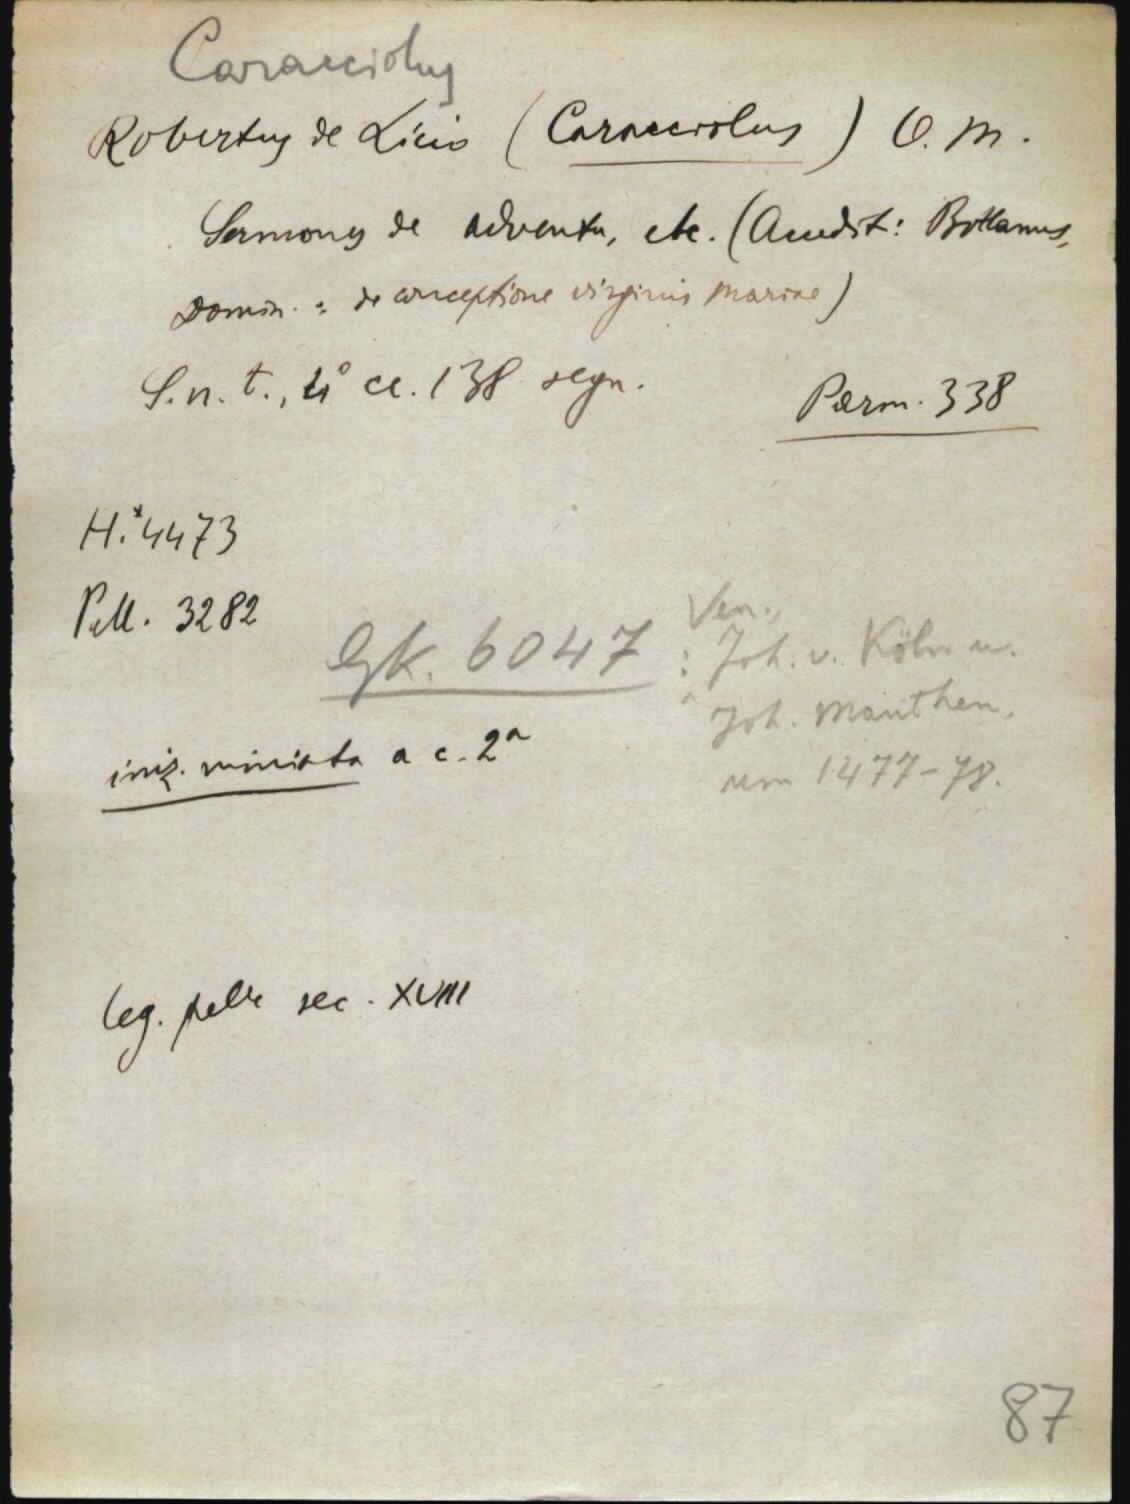 Caracciolus
Robertus de Licio (Caracciolus) O. M.
Sermones de adventu, etc. (Accedit: Bollanus,
Domin.: de conceptione virginis Mariae)
S. n. t., 4° cc. 138 segn.
Parm. 338
H.*4473
Pell. 3282
Gk. 6047 : Ven.,
Joh. v. Köln u.
Joh. Manthen,
um 1477-78.
iniz. miniata a c. 2a
leg. pelle sec. XVIII
87